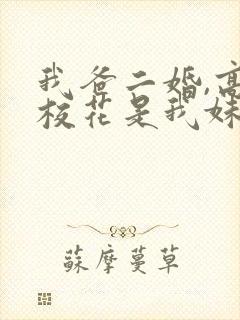 我爸二婚,高
校花是我妹
蘇摩蔓草